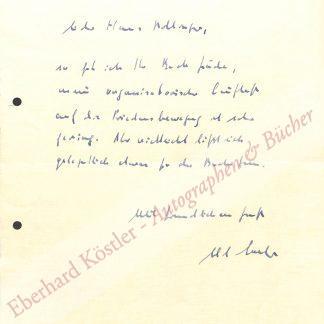 Lieber Hans
so geh ich Ihr Buch finde,
mein organisatorischer Einfluß
auf die Friedensbewegung ist sehr
gering. Aber vielleicht läßt sich
gelegentlich etwas für das Buch tun.
Mit freundlichem Gruß
Eberhard Köstler - Autographen & Bücher